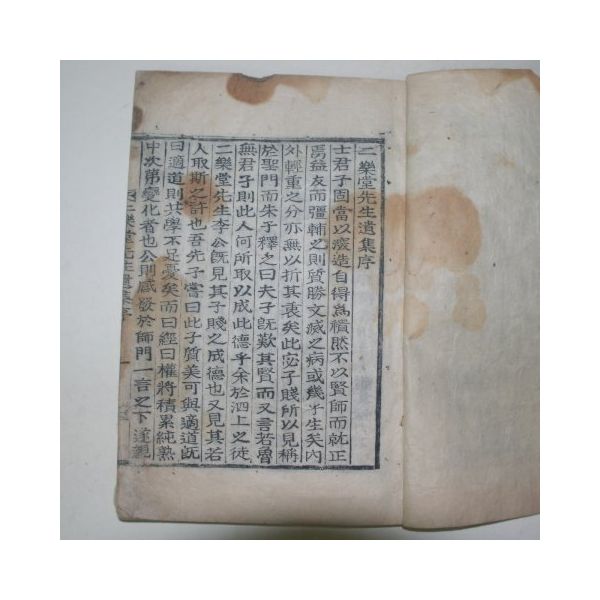 二樂堂先生遺集序
士君子固當以深造自得爲櫝然不以賢師而就正
焉益友而彊輔之則質勝文滅之病或幾乎生矣內
外輕重之分亦無以折其衷矣此宓子賤所以見稱
於聖門而朱子釋之曰夫子旣歎其賢而又言若魯
無君子則此人何所取以成此德乎余於泗上之徒
二樂堂先生李公旣見其子賤之成德也又見其若
人取斯之許也吾先子嘗曰此子質美可與適道旣
曰適道則共學不足憂矣而曰經曰權將積累純熟
中次第變化者也公則感發於師門一言之下遂親
二樂堂先生遺集序 一